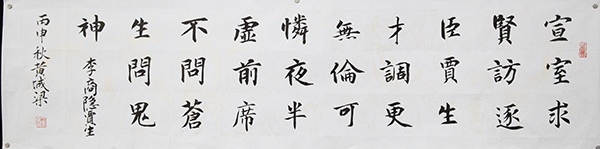 宣室求
賢訪逐
臣賈生
才調更
無倫可
憐夜半
虛前席
不問蒼
生問鬼
神
李商隐賈生
丙申秋黄